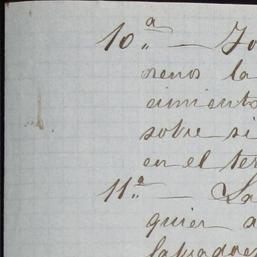 10.ª — To
renos la
cimient
sobre si
en el ter
11.ª — La
quier a
labrador